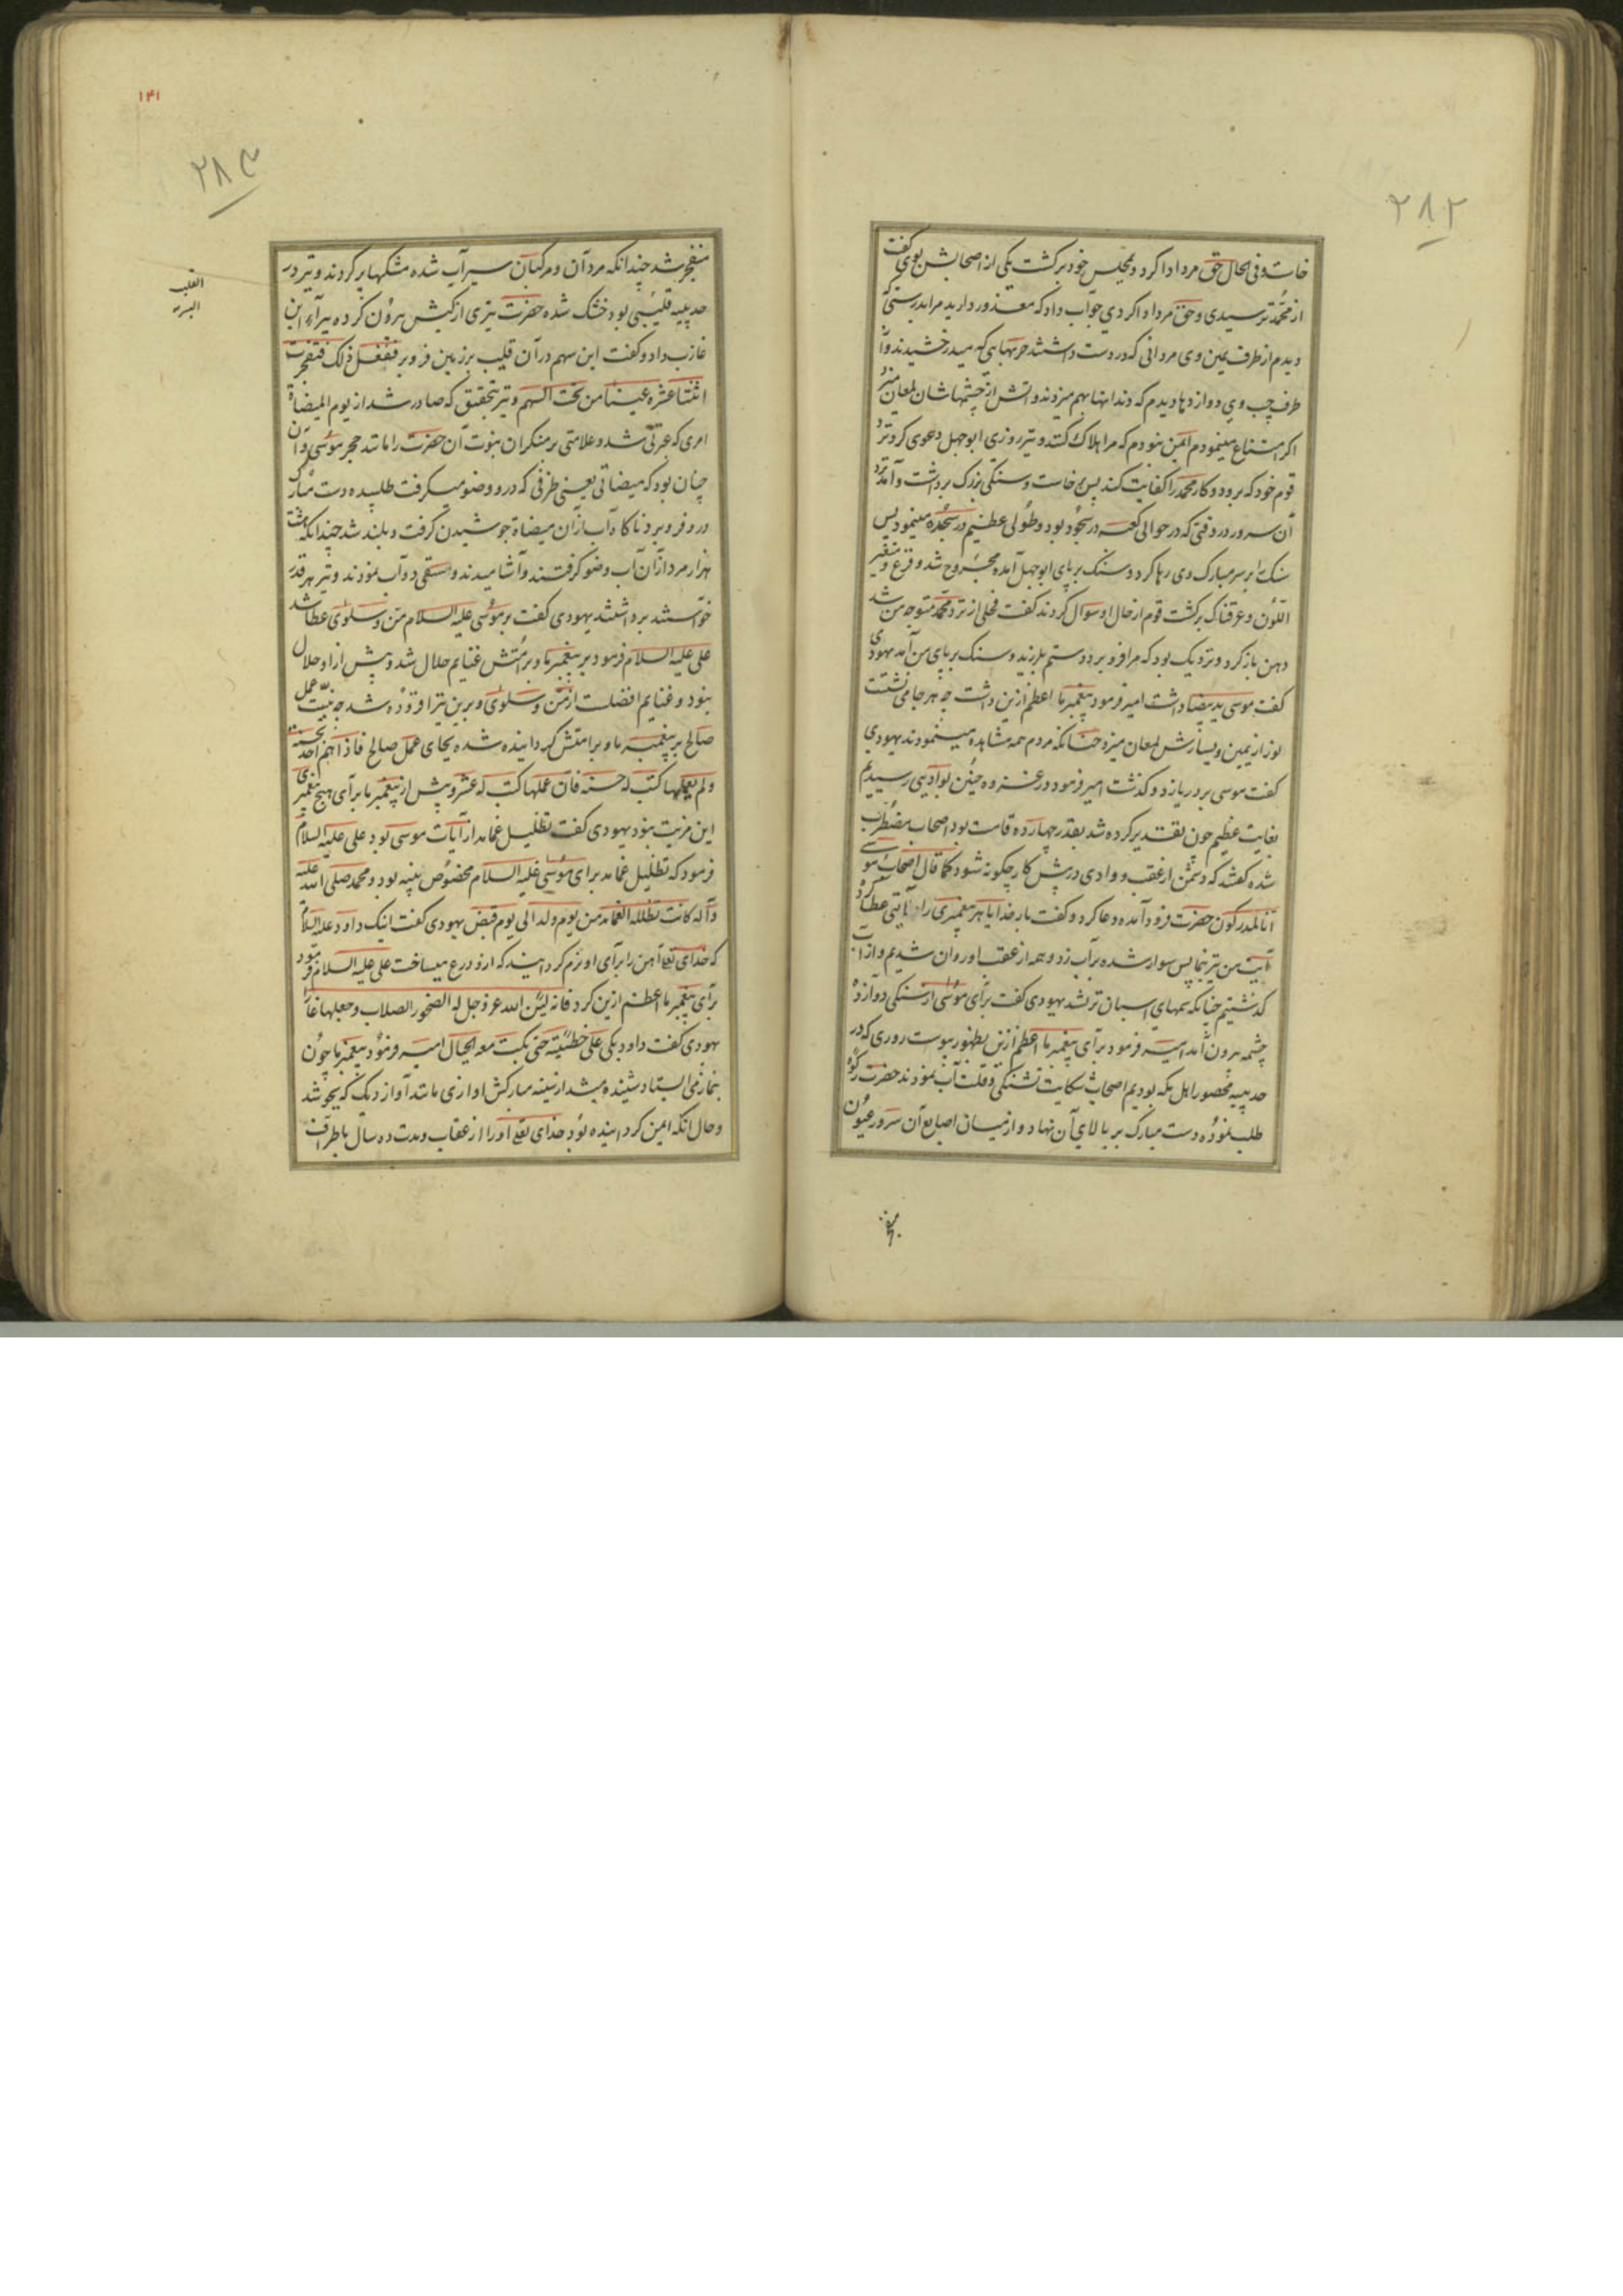 ۲۸۲
خاست و فی الحال حق مرد ادا کرد و بمجلس خود برکشت یکی از اصحابش بوی کفت
از محمد ترسیدی و حق مرد ادا کردی جواب داد که معذور دارید مرا بدرستی که
دیدم از طرف یمین وی مردانی که در دست داشتند حربهایی که میدرخشیدند و از
طرف چپ وی دو اژدها دیدم که دندانها بهم میزدند و آتش از چشمهاشان لمعان میزد
اکر امتناع مینمودم ایمن نبودم که مرا هلاک کنند و نیز روزی ابوجهل دعوی کرد نزد
قوم خود که برود و کار محمد را کفایت کند پس برخاست و سنکی بزرک برداشت و آمد نزد
آن سرور در وقتی که در حوالی کعبه در سجود بود و طولی عظیم در سجده مینمود پس
سنک را بر سر مبارک وی رها کرد و سنک بر پای ابوجهل آمده مجروح شد و فزع و متغیر
اللون و عرقناک برکشت قوم از حال او سوال کردند کفت فحلی از نزد محمد متوجه من شد
دهن باز کرد و نزدیک بود که مرا فرو برد دستم بلرزید و سنک بر پای من آمد یهودی
کفت موسی ید بیضا داشت امیر فرمود پیغمبر ما اعظم ازین داشت چه هر جا می نشست
نور از یمین و یسارش لمعان میزد چنانکه مردم همه مشاهده مینمودند یهودی
کفت موسی بر دریا زد و کذشت امیر فرمود در غزوه حنین بوادیی رسیدیم
بغایت عظیم چون تقدیر کرده شد بقدر چهارده قامت بود اصحاب مضطرب
شده کفتند که دشمن از عقب و وادی در پیش کار چکونه شود کما قال اصحاب موسی
انا لمدرکون حضرت فرود آمده دعا کرد و کفت بار خدایا هر پیغمبری را آیتی عطا کرده
آیت من نیز بنما پس سوار شده بر آب زد و همه از عقب او روان شدیم و از آب
کذشتیم چنانکه سمهای اسبان تر نشد یهودی کفت برای موسی از سنکی دوازده
چشمه برون آمد امیر فرمود برای پیغمبر ما اعظم ازین بظهور پیوست روزی که در
حدیبیه محصور اهل مکه بودیم اصحاب شکایت تشنکی و قلت آب نمودند حضرت رکوه
طلب نموده دست مبارک بر بالای آن نهاد و از میان اصابع آن سرور عیون
۱۴۱
۲۸۳
منفجر شد چندانکه مردان و مرکبان سیراب شده مشکها پر کردند و نیز در
حدیبیه قلیبی بود خشک شده حضرت تیری از کیش برون کرده ببراء ابن
عازب داد و کفت این سهم در آن قلیب بر زمین فرو بر ففعل ذلک فتفجرت
اثنتا عشره عینا من تحت السهم و نیز بتحقیق که صادر شد از یوم المیضاة
امری که عبرتی شد و علامتی بر منکران نبوت آن حضرت را مانند حجر موسی و آن
چنان بود که میضاتی یعنی ظرفی که در و وضو میکرفت طلبیده دست مبارک
در و فرو برد ناکاه آب از آن میضاة جوشیدن کرفت و بلند شد چندانکه هشت
هزار مرد از آن آب وضو کرفتند و آشامیدند و استقی دواب نمودند و نیز هر قدر
خواستند برداشتند یهودی کفت بر موسی علیه السلام من و سلوی عطا شد
علی علیه السلام فرمود بر پیغمبر ما و بر امتش غنایم حلال شد و پیش از او حلال
نبود و غنایم افضلست از من و سلوی و برین نیز افزوده شد چه نیت عمل
صالح بر پیغمبر ما و بر امتش کردانیده شده بجای عمل صالح فاذا هم احد بحسنه
ولم یعملها کتب له حسنه فان عملها کتب له عشر و پیش از پیغمبر ما برای هیچ پیغمبری
این مزیت نبود یهودی کفت تظلیل غمامه از آیات موسی بود علی علیه السلام
فرمود که تظلیل غمامه برای موسی علیه السلام مخصوص تیه بود و محمد صلی الله علیه
و آله کانت تظلله الغمامه من یوم ولد الی یوم قبض یهودی کفت اینک داود علیه السلام
که خدای تعالی آهن را برای او نرم کردانید که ازو درع میساخت علی علیه السلام فرمود
برای پیغمبر ما اعظم ازین کرد فانه لین الله عز و جل له الصخور الصلاب و جعلها غارا
یهودی کفت داود بکی علی خطیئته حتی بکت معه الجبال امیر فرمود پیغمبر ما چون
بنماز می ایستاد شنیده میشد از سینه مبارکش اوازی مانند آواز دیک که بجوشد
و حال انکه ایمن کردانیده بود خدای تعالی او را از عقاب و مدت ده سال باطراف
القلیب
البیر